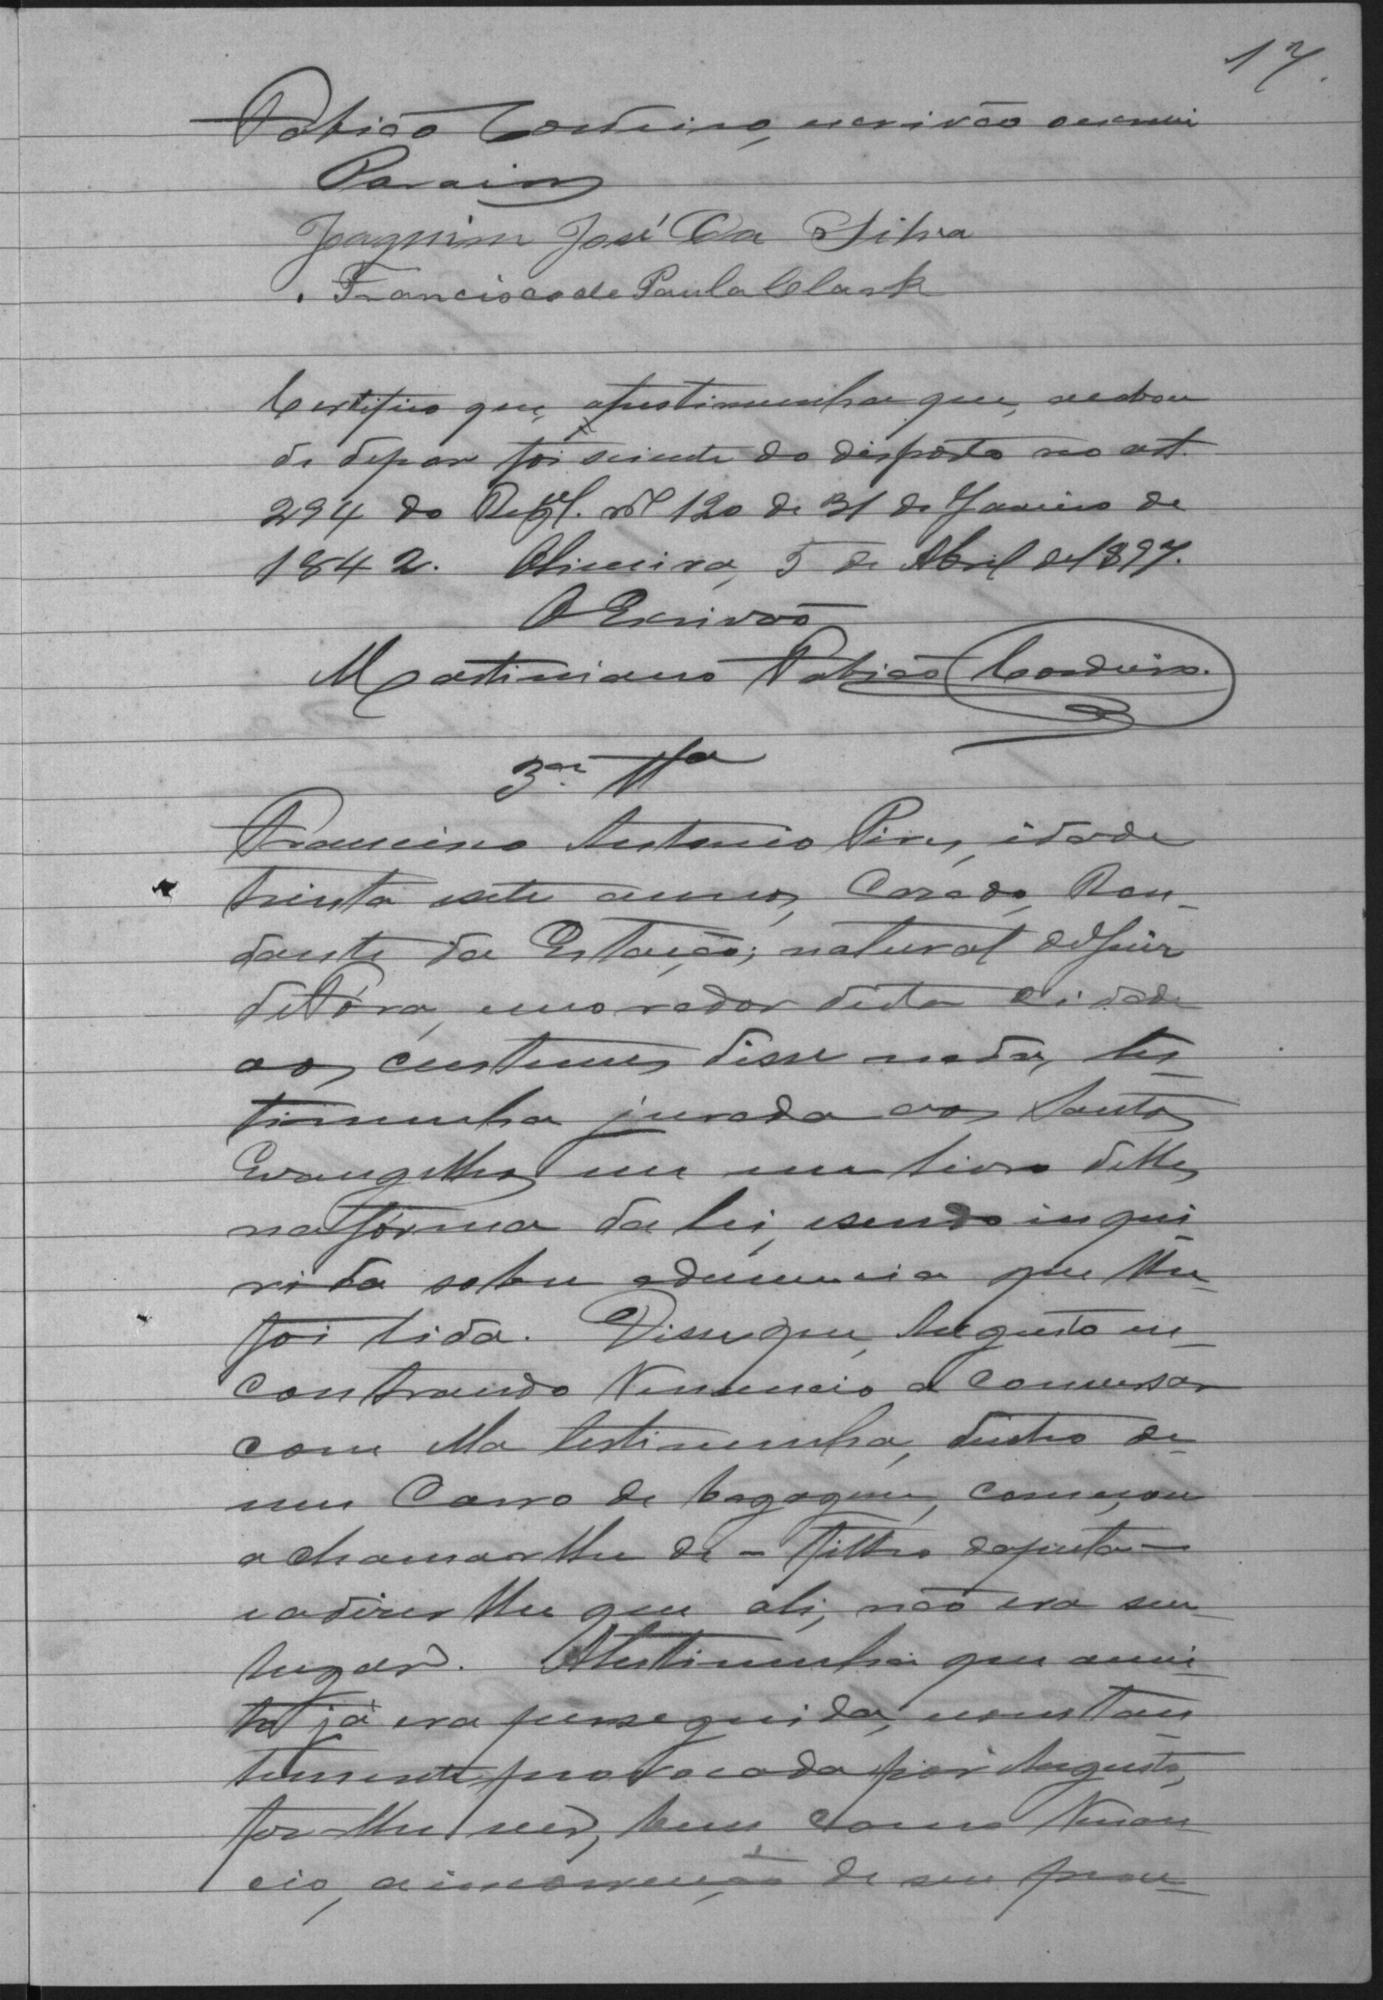 17.
Fabião Cordeiro, escrivão o escrevi
Paraiso
Joaquim José Da Silva
Francisco de Paula Clark
Certifico que, a testimunha que, acabou
de depor foi sciente do disposto no art.
294 do Regl. nº 120 de 31 de Janeiro de
1842. Oliveira, 5 de Abril de 1897.
O Escrivão
Martiniano Fabião Cordeiro.
3ª Tta
Francisco Antonio Pires, idade
trinta e sete annos, Casado, Ron-
dante da Estação; natural de Juiz
de Fóra, morador desta cidade
aos custumes disse nada, tes-
timunha jurada aos Santos
Evangelhos em um livro delles
na fórma da lei, e sendo inqui-
rida sobre a denuncia que lhe
foi lida. Disse que, Augusto en-
contrando Venancio a conversar
com ella testimunha, dentro de
um Carro de bagagem, começou
a chamar-lhe de - filho da puta -
e a dizer lhe que ali, não era seu
lugar. A testimunha que muí
to já era perseguida, e constan
temente provocada por Augusto,
fez-lhe ver, bem como Venan-
cio, a incorrecção de seu proce-